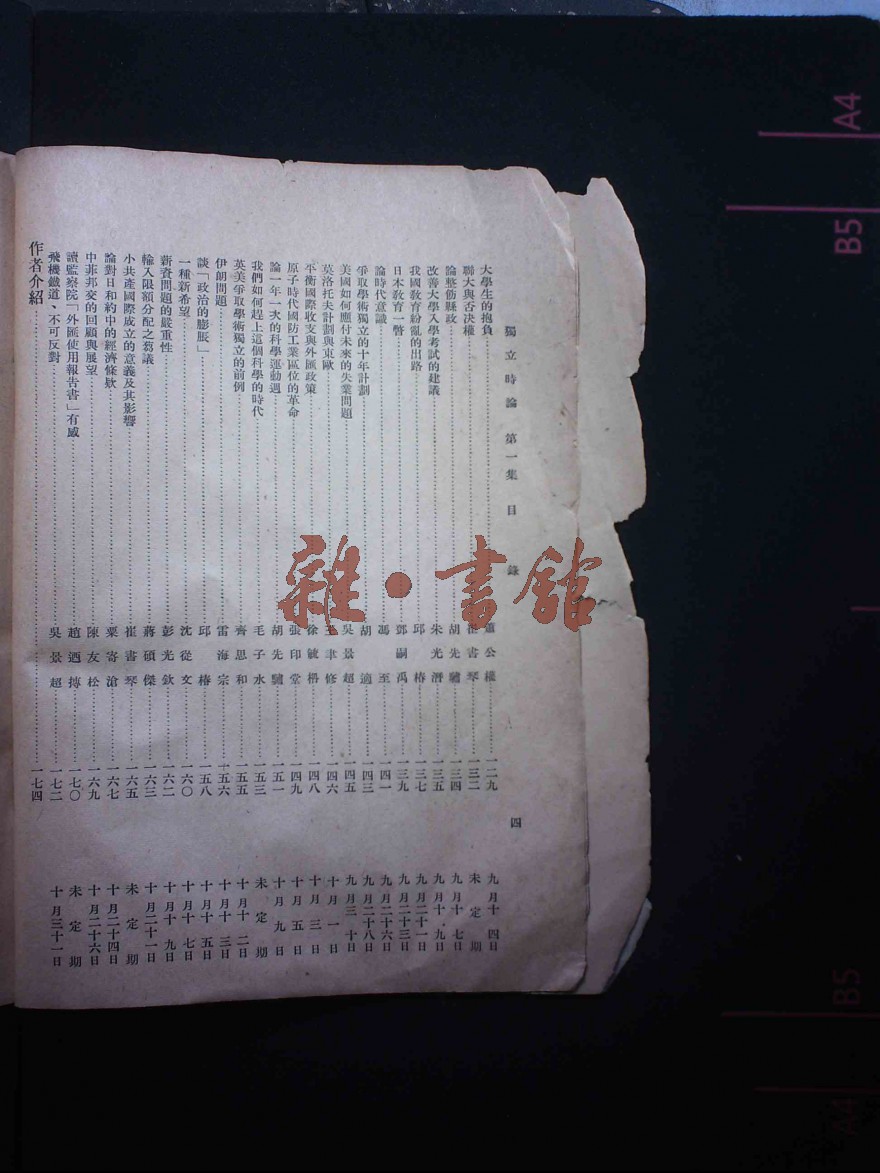 獨立時論 第一集 目錄 四
大學生的抱負 蕭公權 一二九 九月十四日
聯大與否決權 崔書琴 一三二 未定期
論整飭縣政 胡先驌 一三四 九月十七日
改善大學入學考試的建議 朱光潛 一三五 九月十九日
我國教育紛亂的出路 邱椿 一三七 九月二十一日
日本教育一瞥 鄧嗣禹 一三九 九月二十三日
論時代意識 馮至 一四一 九月二十六日
爭取學術獨立的十年計劃 胡適 一四三 九月二十八日
美國如何應付未來的失業問題 吳景超 一四五 九月三十日
莫洛托夫計劃與東歐 王聿修 一四六 十月一日
平衡國際收支與外匯政策 徐毓枬 一四八 十月三日
原子時代國防工業區位的革命 張印堂 一四九 十月五日
論一年一次的科學運動週 胡先驌 一五一 十月九日
我們如何趕上這個科學的時代 毛子水 一五三 未定期
英美爭取學術獨立的前例 齊思和 一五五 十月十二日
伊朗問題 雷海宗 一五六 十月十三日
談「政治的膨脹」 邱椿 一五八 十月十五日
一種新希望 沈從文 一六〇 十月十七日
薪資問題的嚴重性 彭光欽 一六二 十月十九日
輸入限額分配之芻議 蔣碩傑 一六三 十月二十一日
小共產國際成立的意義及其影響 崔書琴 一六五 未定期
論對日和約中的經濟條欵 粟寄滄 一六七 十月二十四日
中菲邦交的回顧與展望 陳友松 一六九 十月二十六日
讀監察院「外匯使用報告書」有感 趙迺摶 一七〇 未定期
飛機鐵道、不可反對 吳景超 一七二 十月三十一日
作者介紹 一七四
雜·書館
A4
B5
B5
A4